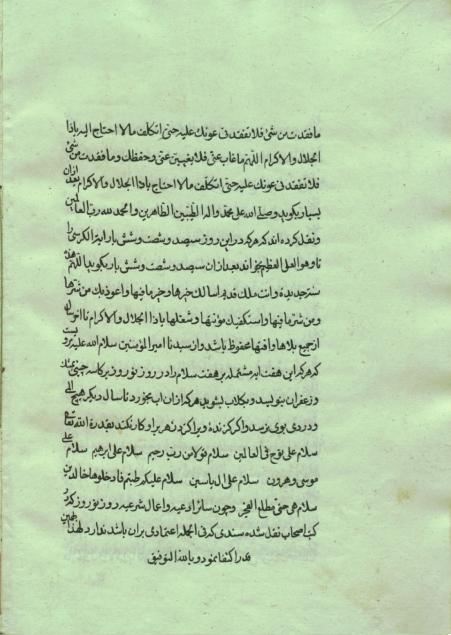 ما فقدت من شئ فلا تفقدنی عونك علیه حتی لا اتکلف مالا احتاج الیه یاذا
الجلال والاکرام اللهم ماغاب عنی فلا یغیبن عنی وحفظك وما فقدت من شئ
فلا تفقدنی عونك علیه حتی لا اتکلف مالا احتاج یاذا الجلال والاکرام بعد ازان
بسیار بکوید وصلی الله علی محمد واله الطیبین الطاهرین والحمد لله رب العالمین
ونقل کرده اند که هر که در این روز سیصد وشصت وشش بار ایة الکرسی را
تا وهو العلی العظیم بخواند بعد ازان سیصد وشصت وشش بار بکوید اللهم هذه
سنة جدیدة وانت ملك قدیم اسالك خیرها وخیر ما فیها واعوذ بك من شرها
ومن شر ما فیها واستکفیك مؤنتها وشغلها یاذا الجلال والاکرام تا
از جمیع بلاها وافتها محفوظ باشد واز سیدنا امیر المؤمنین سلام الله علیه
که هر که این هفت ایه مشتمله بر هفت سلام را در روز نوروز بر کاسه چینی
وزعفران بنویسد وبکلاب بشوید هر که ازان اب بخورد تا سال دیکر هیچ
ودردی بوی نرسد واکر کزنده ویرا کزد زهر براو کار نکند بقدرة الله تعالی
سلام علی نوح فی العالمین سلام قولا من رب رحیم سلام علی ابرهیم سلام علی
موسی وهرون سلام علی ال یاسین سلام علیکم طبتم فادخلوها خالدین
سلام هی حتی مطلع الفجر وچون سائر ادعیه واعمال شرعیه روز نوروز که در
کتب اصحاب نقل شده سندی که فی الجمله اعتمادی بران باشد ندارد لهذا
قدر اکتفا نمود وبالله التوفیق